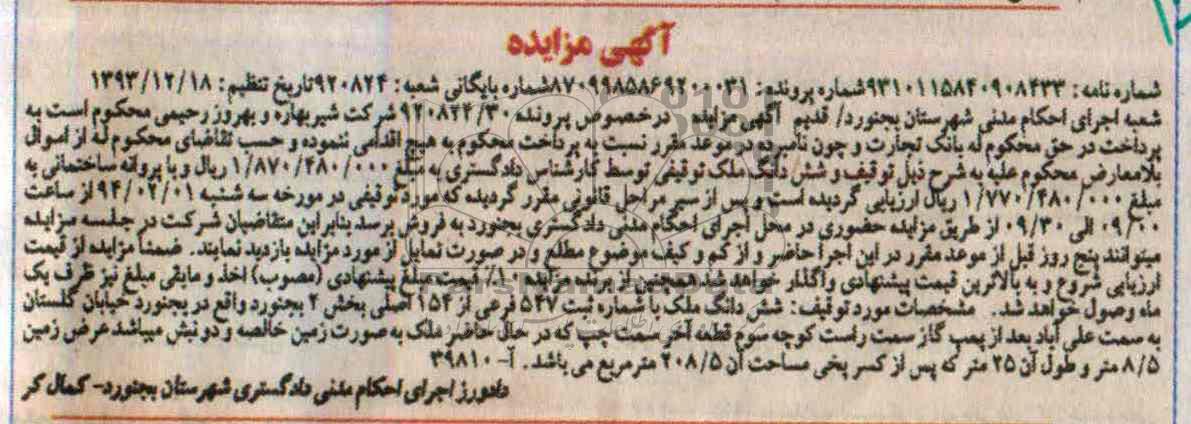 آگهی مزایده
شماره نامه: ۹۳۱۰۱۱۵۸۴۰۹۰۸۴۳۳شماره پرونده: ۸۷۰۹۹۸۵۸۶۹۲۰۰۰۳۱شماره بایگانی شعبه: ۹۲۰۸۲۴تاریخ تنظیم: ۱۳۹۳/۱۲/۱۸
شعبه اجرای احکام مدنی شهرستان بجنورد/ قدیم آگهی مزایده درخصوص پرونده ۹۲۰۸۲۴/۳۰ شرکت شیربهاره و بهروز رحیمی محکوم است به
پرداخت در حق محکوم له بانک تجارت و چون نامبرده در موعد مقرر نسبت به پرداخت محکوم به هیچ اقدامی ننموده و حسب تقاضای محکوم له از اموال
بلامعارض محکوم علیه به شرح ذیل توقیف و شش دانگ ملک توقیفی توسط کارشناس دادگستری به مبلغ ۱/۸۷۰/۴۸۰/۰۰۰ ریال و با پروانه ساختمانی به
مبلغ ۱/۷۷۰/۴۸۰/۰۰۰ ریال ارزیابی گردیده است و پس از سیر مراحل قانونی مقرر گردیده که مورد توقیفی در مورخه سه شنبه ۹۴/۰۲/۰۱ از ساعت
۰۹/۰۰ الی ۰۹/۳۰ از طریق مزایده حضوری در محل اجرای احکام مدنی دادگستری بجنورد به فروش برسد بنابراین متقاضیان شرکت در جلسه مزایده
میتوانند پنج روز قبل از موعد مقرر در این اجرا حاضر و از کم و کیف موضوع مطلع و در صورت تمایل از مورد مزایده بازدید نمایند. ضمناً مزایده از قیمت
ارزیابی شروع و به بالاترین قیمت پیشنهادی واگذار خواهد شد همچنین از برنده مزایده ۱۰٪ قیمت مبلغ پیشنهادی (مصوب) اخذ و مابقی مبلغ نیز ظرف یک
ماه وصول خواهد شد. مشخصات مورد توقیف: شش دانگ ملک با شماره ثبت ۵۴۷ فرعی از ۱۵۴ اصلی بخش ۲ بجنورد واقع در بجنورد خیابان گلستان
به سمت علی آباد بعد از پمپ گاز سمت راست کوچه سوم قطعه آخر سمت چپ که در حال حاضر ملک به صورت زمین خالصه و دونبش میباشد عرض زمین
۸/۵ متر و طول آن ۲۵ متر که پس از کسر پخی مساحت آن ۲۰۸/۵ مترمربع می باشد. آ- ۳۹۸۱۰
دادورز اجرای احکام مدنی دادگستری شهرستان بجنورد- کمال کر